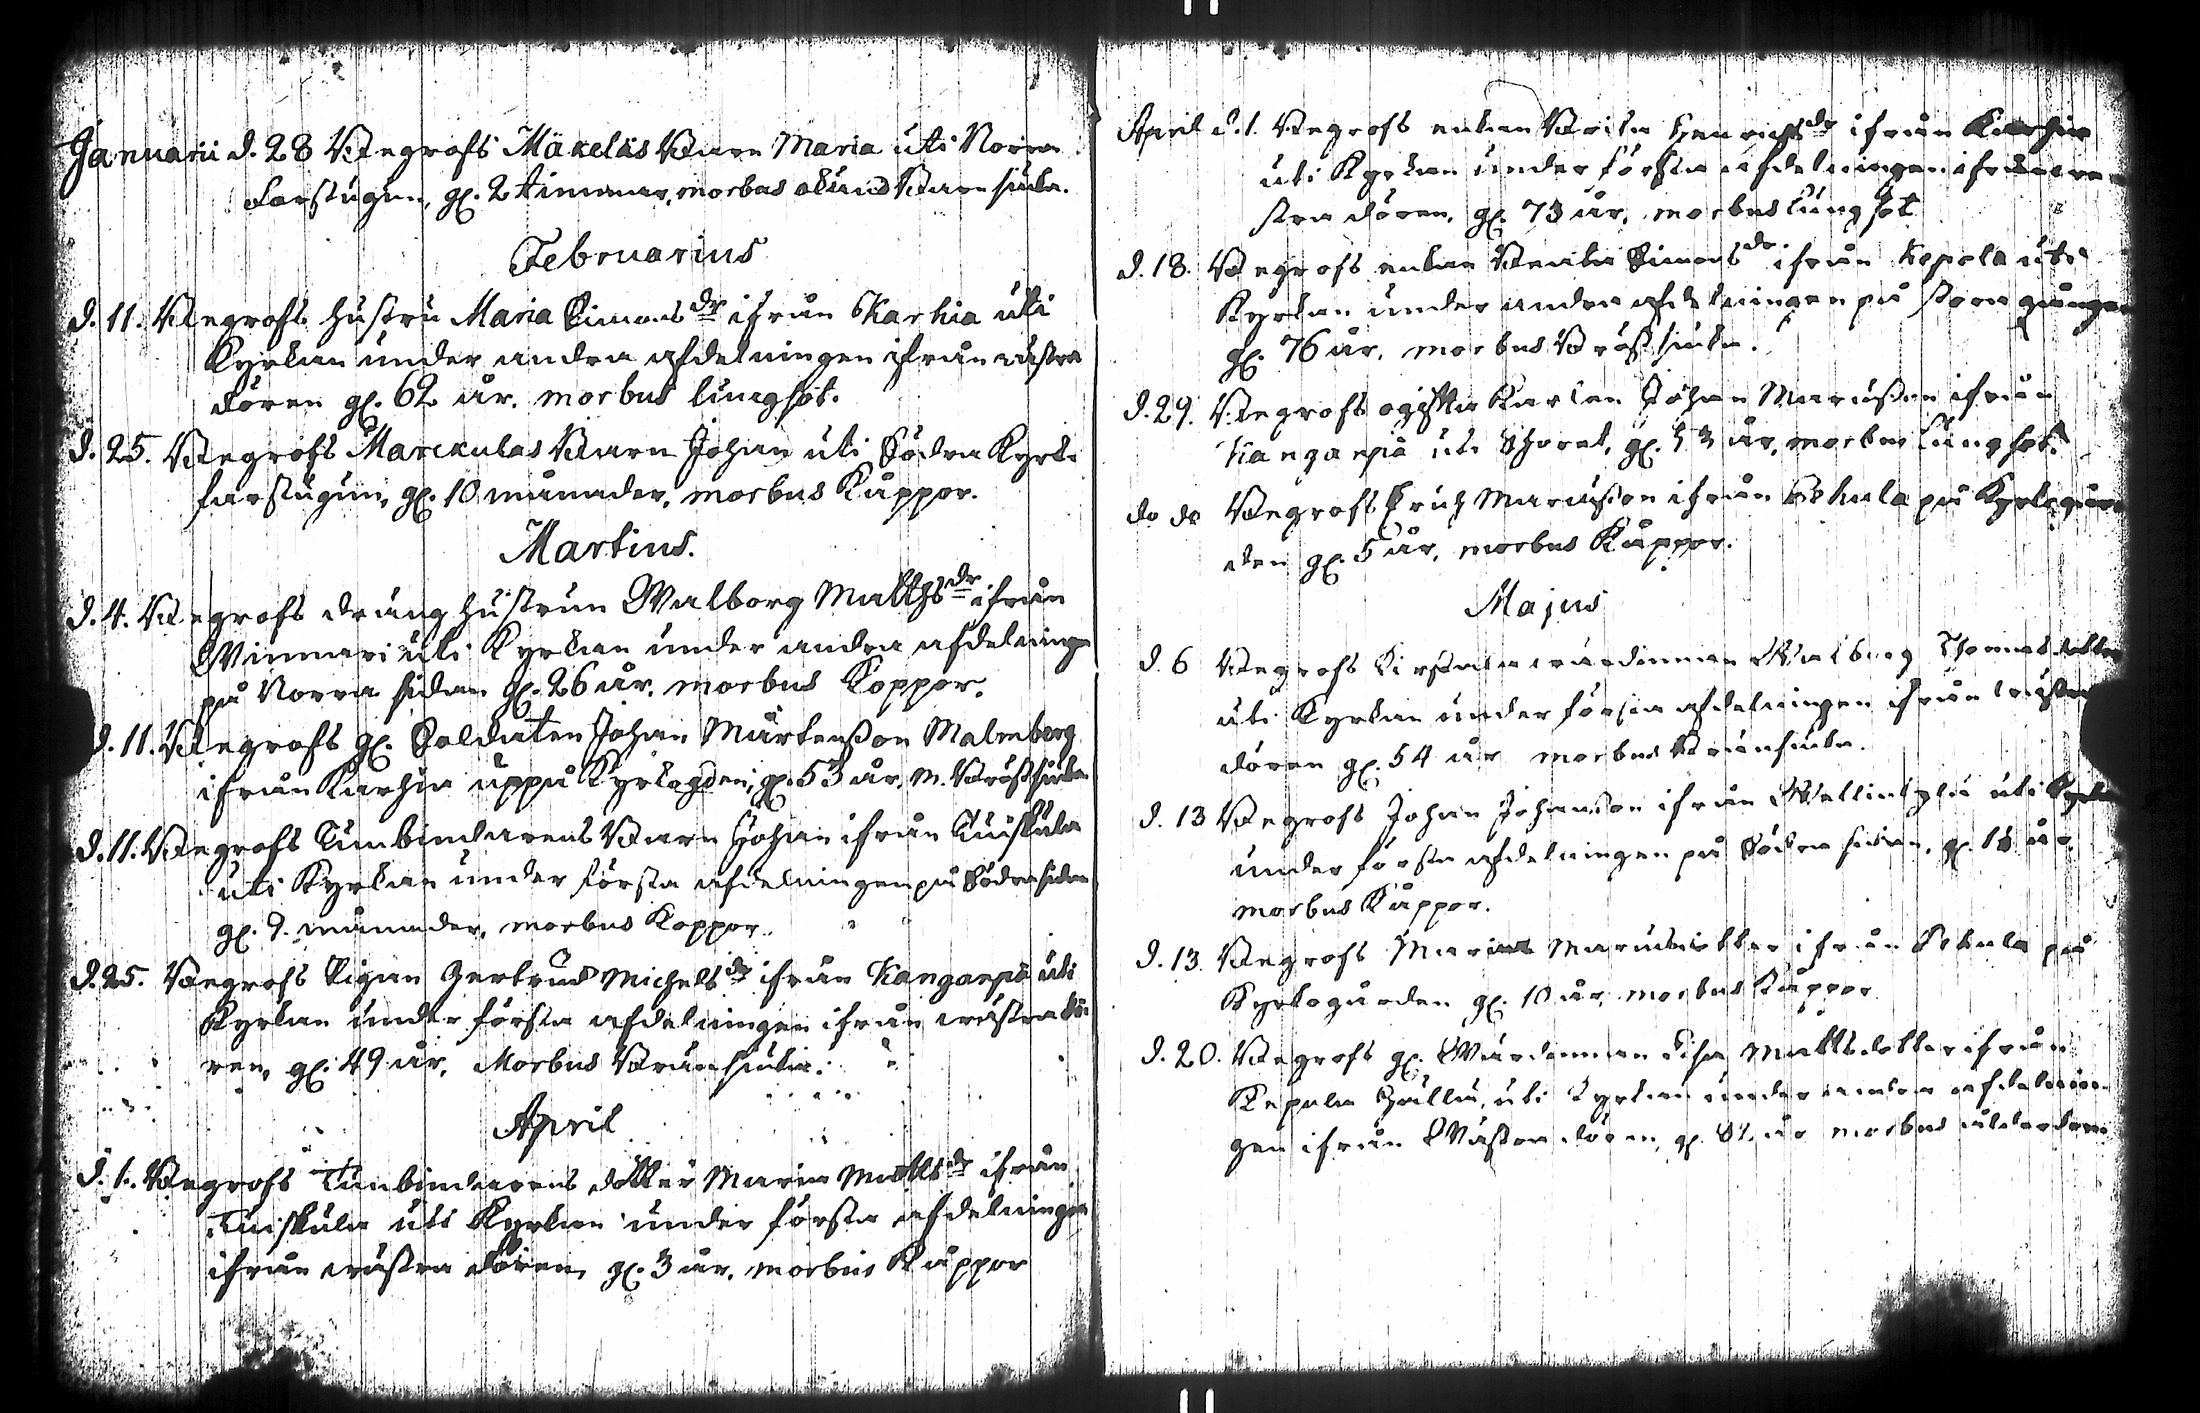 Januarii d. 28 Begrofs Mäkeläs Barn Maria uti Norra
farstugun, gl. 2 timmar, morbus okiänd Barnsiuka.
Februarius
d. 11. Begrofs hustru Maria Simonsdr ifrån Karhia uti
Kyrkan under andra afdelningen ifrån västra
dören gl. 62 år. morbus lungsot.
d. 25. Begrofs Marckulas Barn Johan uti Södra Kyrk-
farstugun, gl. 10 månader, morbus Kåppor.
Martius.
d. 4. Begrofs dräng hustrun Walborg Mattsdr ifrån
Winnari uti Kyrkan under andra afdelninge
på Norra sidan gl. 26 år. morbus Koppor.
d. 11. Begrofs gl. Soldaten Johan Mårtensson Malmberg
ifrån Karhia uppå Kyrkogden, gl. 53 år, m. Bröstsiuka
d. 11. Begrofs Tunbindarens Barn Johan ifrån Tuiskula
uti Kyrkan under första afdelningen på Södra sidan
gl. 9. månader, morbus Koppor.
d. 25. Begrofs Pigan Gertrud Michelsdr ifrån Kanganpä uti
Kyrkan under första afdelningen ifrån wästra dö-
ren, gl. 49 år, Morbus Brånsiuka.
April
d. 1. Begrofs Tunbindarens dotter Maria Mattsdr ifrån
Tuiskula uti Kyrkan under första afdelningen
ifrån wästra dören, gl. 3 år. morbus Kåppor
April d. 1. Begrofs enkan Henrichsdr ifrån Karhia
uti Kyrkan under första afdelningen ifrån
stra dören, gl. 73 år, morbus lungsot
d. 18. Begrofs enkan Beata Simonsdr ifrån Kepola uti
Kyrkan under andra afdelningen på stora gången
gl. 76 år. morbus Bröstsiuka.
d. 29. Begrofs ogifta Karlen Johan Mariusson ifrån
Kanganpä uti Choret, gl. 53 år, morbus lungsot.
do do Begrofs Erich Mariusson ifrån Pekula på Kyrkogår-
den gl. 5 år, morbus Kåppor.
Majus
d. 6 Begrofs wärdinnan Walborg Thomasdotter
uti Kyrkan under första afdelningen ifrån wästra
dören gl. 54 år morbus Brånsiuka.
d. 13 Begrofs Johan Johansson ifrån uti Kyrkan
under första afdelningen på Södra sidan, gl. år
morbus Kåppor.
d. 13. Begrofs Maria Mariusdotter ifrån Pekula på
Kyrkogården gl. 10 år, morbus Kåppor
d. 20. Begrofs gl. Wärdinnan Lisa Mattsdotter ifrån
Kepola uti Kyrkan under andra afdelnin-
gen ifrån Wästra dören, gl. 81 år morbus ålderdom